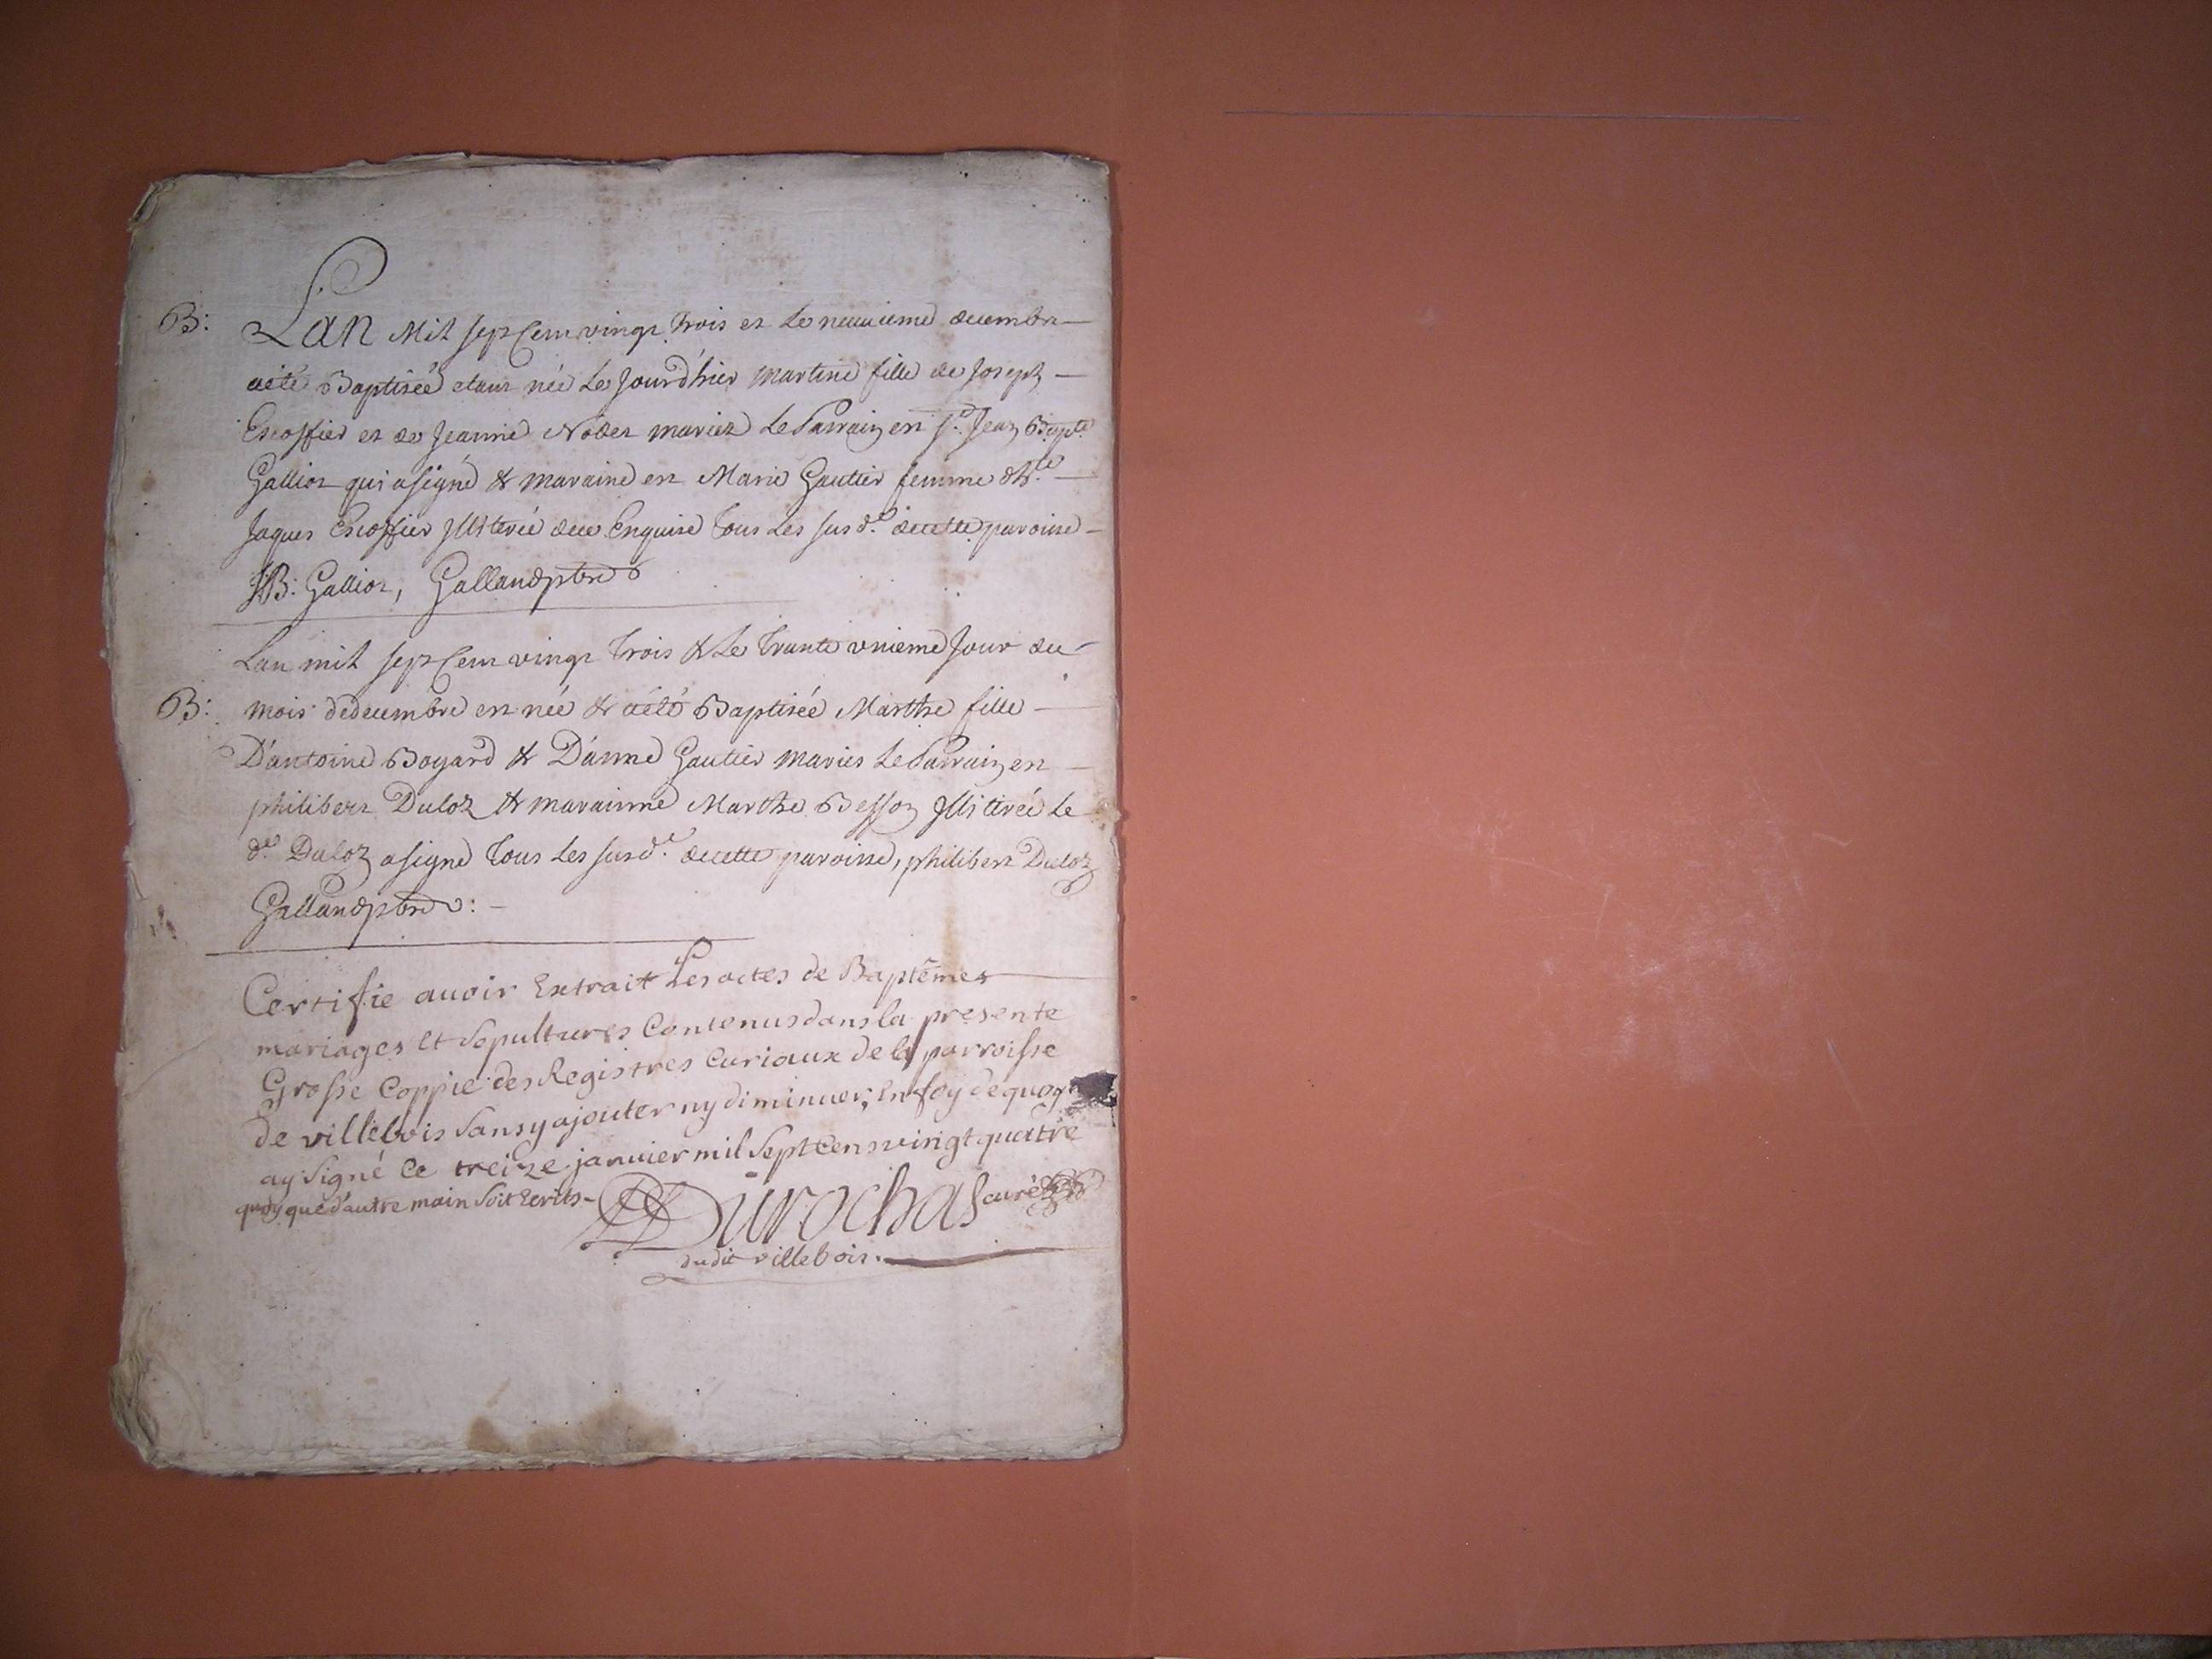 B: Lan Mil sept Cent vingt trois et le neuuieme decembre
aété Baptiseé etant née le Jourdhier martine fille de Joseph
Escoffier et de Jeanne Nodet mariez Le Parrain est Sr. Jean Bapte.
Galliot qui a signé & maraine est Marie Gautier femme
Jaques Escoffier Jlliterée Enquise Tous Les susd. decette paroisse
JB: Galliot, Galland ptre
Lan mil sept Cent vingt trois & Le trante vnieme Jour du
B: mois dedecembre est née & aété Baptisée Marthe fille
D'antoine Bogard & D'anne Gautier maries Le Parrain est
philibert Duloz & marainne Marthe Besson Jlliterée Le
d. Duloz asigné Tous Les susd. decette paroisse, philibert Duloz
Galland ptre:
Certifie auoir Extrait Les actes de Baptêmes
mariages et Sepultures Contenus dans la presente
Grosse Coppie des Registres Curiaux de la parroisse
de villebois Sans y ajouter ny diminuer, En foy de quoy
ay Signé Ce treize janvier mil Sept Cens vingt quatre
quoy que d'autre main Soit Ecrits
Durochat curé
dudit villebois.